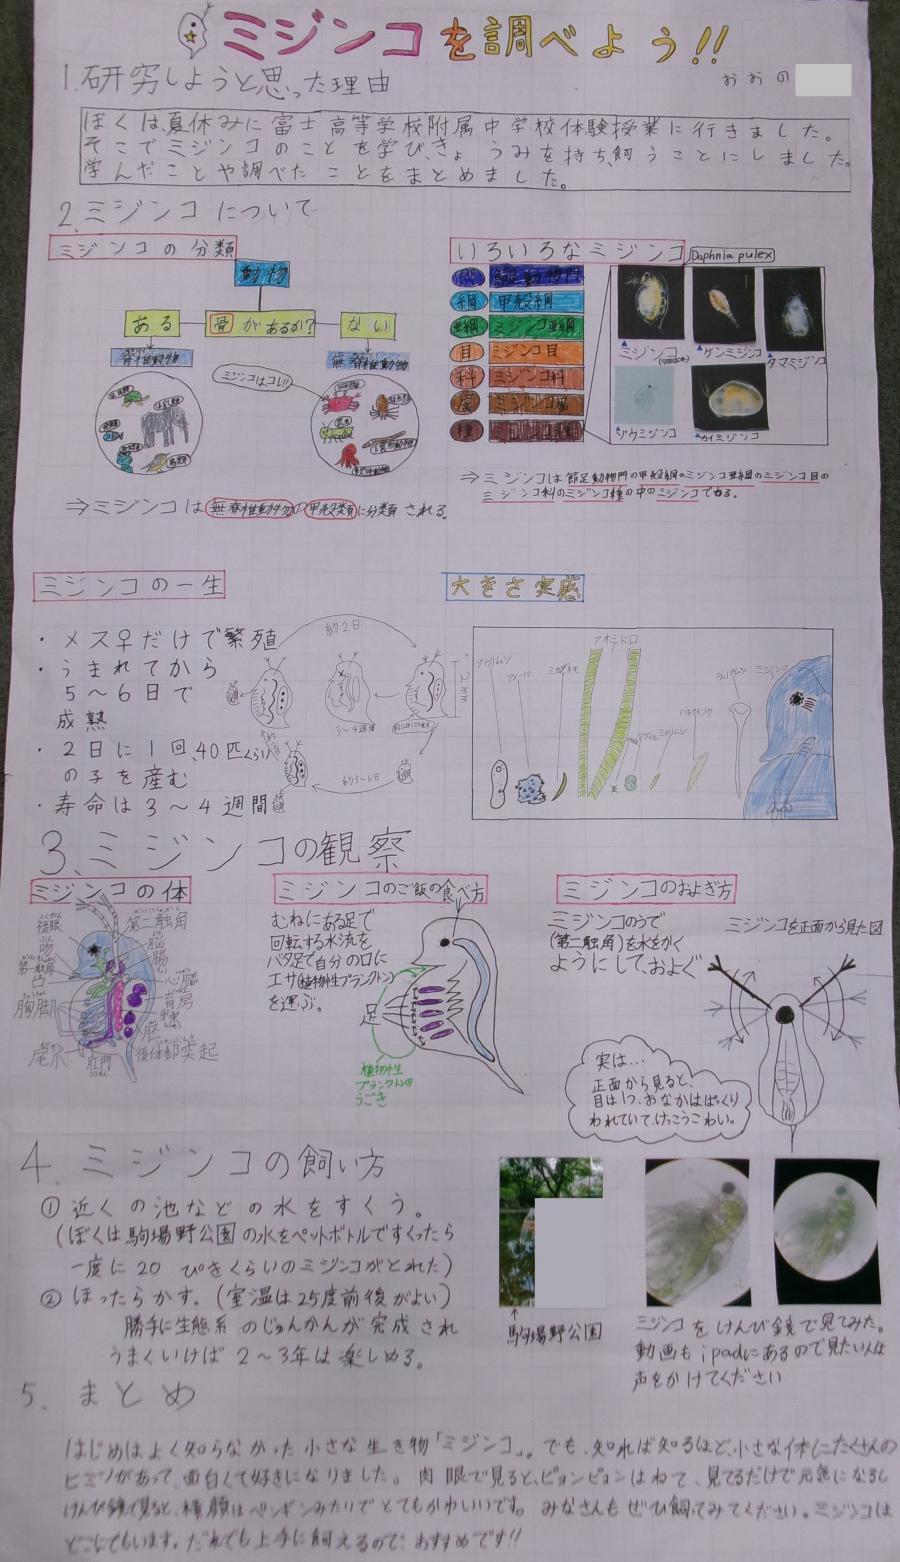 ミジンコを調べよう!!
おおの
1.研究しようと思った理由
ぼくは、夏休みに富士高等学校附属中学校体験授業に行きました。
そこでミジンコのことを学び、きょうみを持ち、飼うことにしました。
学んだことや調べたことをまとめました。
2.ミジンコについて
ミジンコの分類
動物
ある
骨があるか?
ない
脊椎動物
無脊椎動物
ミジンコはコレ!!
⇒ミジンコは無脊椎動物の甲殻類に分類される。
いろいろなミジンコ
Daphnia pulex
門 節足動物門
綱 甲殻綱
亜綱 ミジンコ亜綱
目 ミジンコ目
科 ミジンコ科
属 ミジンコ属
種
ミジンコ
ケンミジンコ
タマミジンコ
ゾウミジンコ
カイミジンコ
⇒ミジンコは節足動物門の甲殻綱のミジンコ亜綱のミジンコ目の
ミジンコ科のミジンコ種の中のミジンコである。
ミジンコの一生
・メス♀だけで繁殖
・うまれてから
5~6日で
成熟
・2日に1回、40匹くらい
の子を産む
・寿命は3~4週間
約2日
3~4週間
約5~6日
2mm
大きさ実感
ゾウリムシ
アメーバ
ミカヅキモ
アオミドロ
ミドリムシ
ミジンコ
3.ミジンコの観察
ミジンコの体
複眼
第二触角
脳
腸
第一触角
心臓
胸脚
育房
卵
尾爪
肛門
後体部突起
ミジンコのご飯の食べ方
むねにある足で
回転する水流を
バタ足で自分の口に
エサ(植物性プランクトン)
を運ぶ。
足
植物性
プランクトンの
うごき
ミジンコのおよぎ方
ミジンコのうで
(第二触角)を水をかく
ようにして、およぐ
ミジンコを正面から見た図
実は…
正面から見ると、
目は1つ、おなかはぱっくり
われていて、けっこうこわい。
4.ミジンコの飼い方
①近くの池などの水をすくう。
(ぼくは駒場野公園の水をペットボトルですくったら
一度に20ぴきくらいのミジンコがとれた)
②ほったらかす。(室温は25度前後がよい)
勝手に生態系のじゅんかんが完成され
うまくいけば2~3年は楽しめる。
↑
駒場野公園
ミジンコをけんび鏡で見てみた。
動画もipadにあるので見たい人は
声をかけてください
5.まとめ
はじめはよく知らなかった小さな生き物「ミジンコ」。でも、知れば知るほど、小さな体にたくさんの
ヒミツがあって、面白くて好きになりました。肉眼で見ると、ピョンピョンはねて、見てるだけで元気になるし
けんび鏡で見ると、横顔はペンギンみたいでとてもかわいいです。みなさんもぜひ飼ってみてください。ミジンコは
どこにでもいます。だれでも上手に飼えるので、おすすめです!!